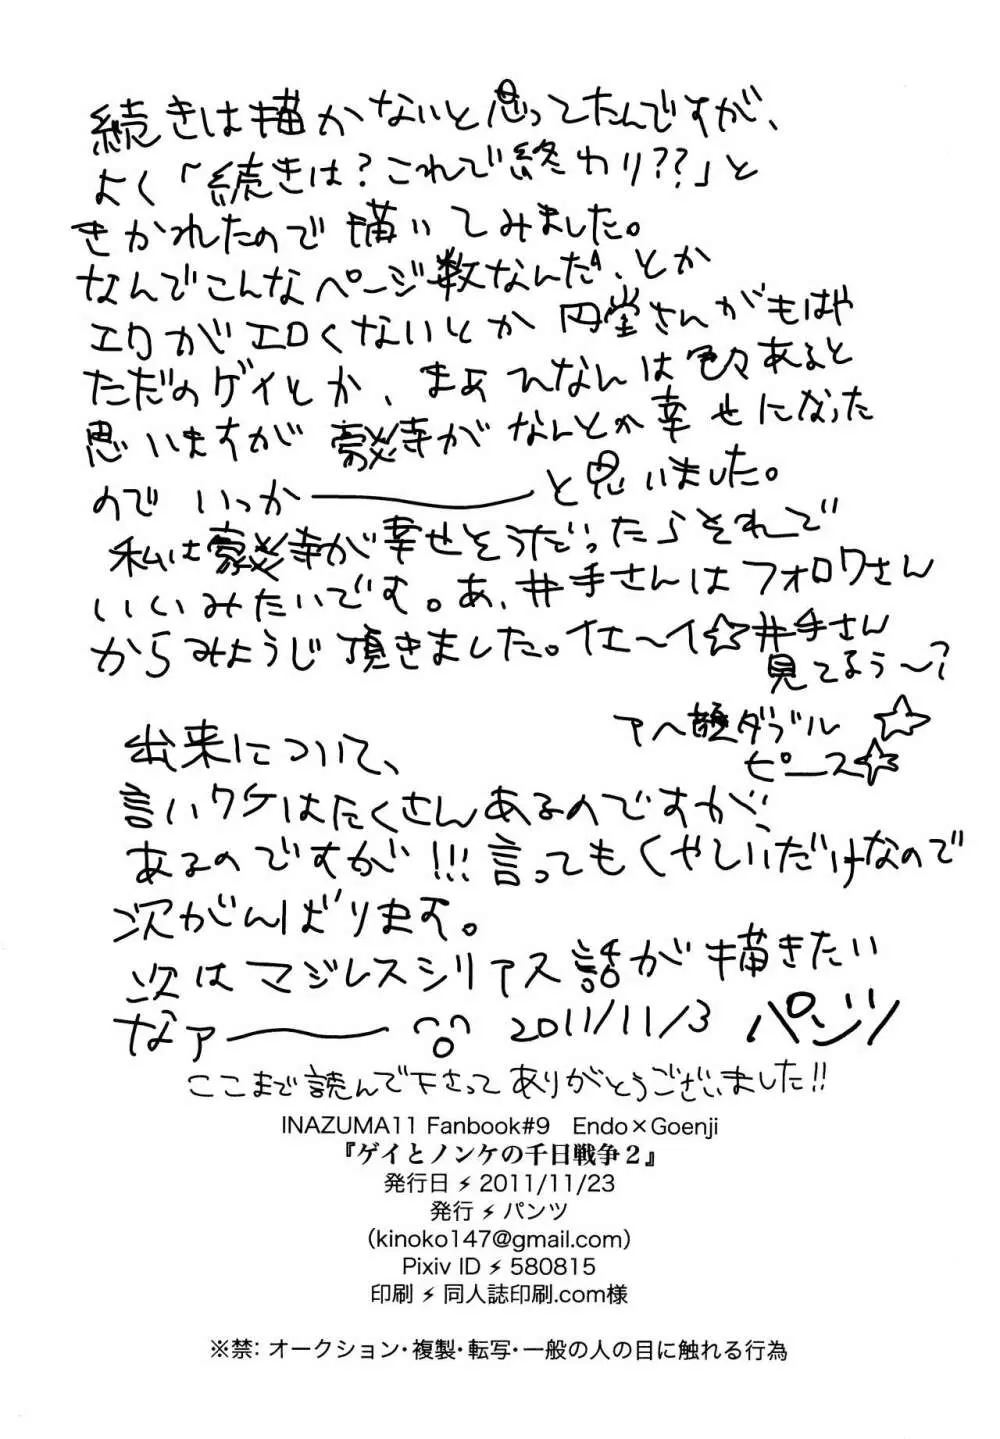 続きは描かないと思ってたんですが、
よく「続きは?これで終わり??」と
きかれたので描いてみました。
なんでこんなページ数なんだ、とか
エロがエロくないとか円堂さんがもはや
ただのゲイとか、まぁなんなんは色々あると
思いますが豪炎寺がなんとか幸せになった
のでいっかーーと思いました。
私は豪炎寺が幸せそうだったらそれで
いいみたいです。あ、井手さんはフォロワさん
からみょうじ頂きました。イエ〜イ☆井手さん
見てるぅ〜?
アヘ顔ダブル
ピース☆
出来について、
言いワケはたくさんあるのですが、
あるのですが!!!言ってもくやしいだけなので
次がんばります。
次はマジレスシリアス話が描きたい
なァーー 2011/11/3 パンツ
ここまで読んで下さってありがとうございました!!
INAZUMA11 Fanbook#9 Endo×Goenji
『ゲイとノンケの千日戦争2』
発行日⚡2011/11/23
発行⚡パンツ
(kinoko147@gmail.com)
Pixiv ID⚡580815
印刷⚡同人誌印刷.com様
※禁: オークション・複製・転写・一般の人の目に触れる行為